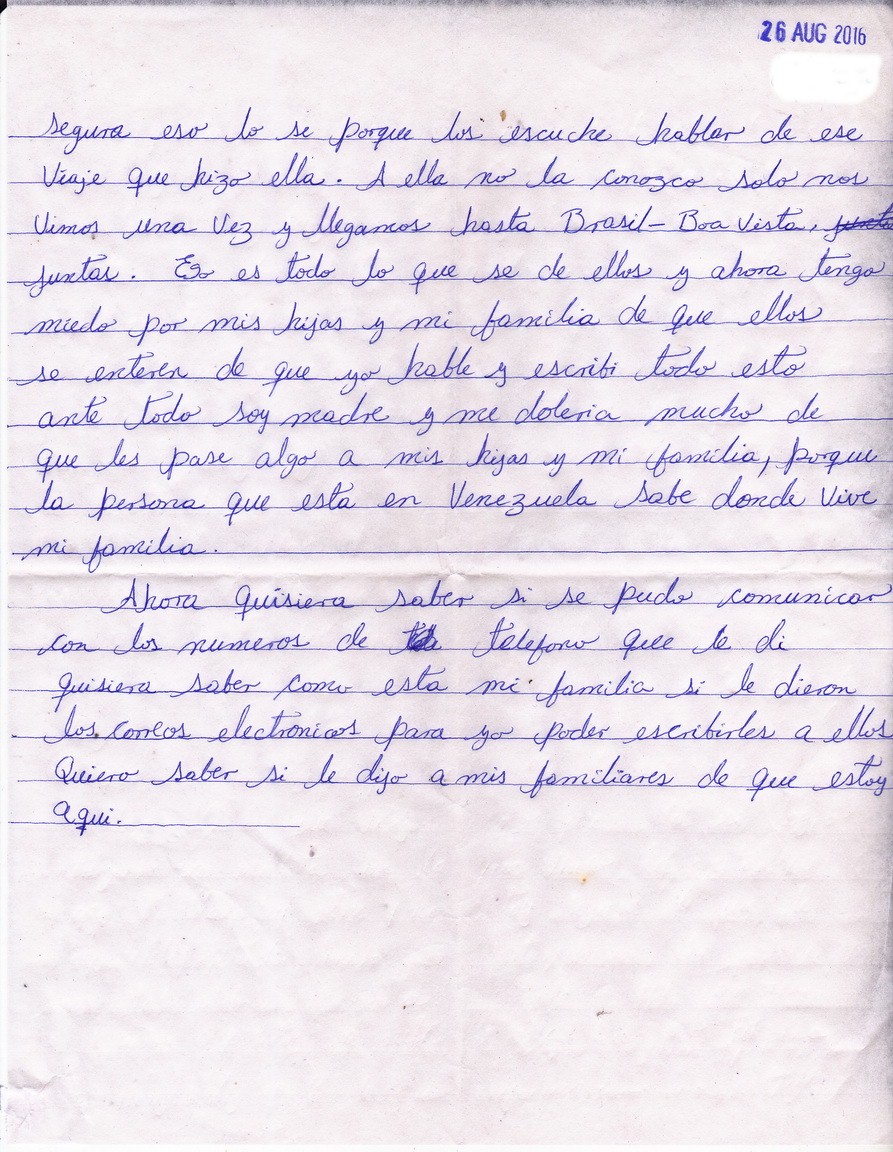 26 AUG 2016
segura eso lo se porque los escuche hablar de ese
Viaje que hizo ella. A ella no la conozco solo nos
Vimos una Vez y llegamos hasta Brasil - Boa Vista,
juntas. Eso es todo lo que se de ellos y ahora tengo
miedo por mis hijas y mi familia de que ellos
se enteren de que yo hable y escribi todo esto
ante todo soy madre y me doleria mucho de
que les pase algo a mis hijas y mi familia, porque
la persona que esta en Venezuela sabe donde Vive
mi familia.
Ahora quisiera saber si se pudo comunicar
con los numeros de telefono que le di
quisiera saber como esta mi familia si le dieron
los correos electronicos para yo poder escribirles a ellos
Quiero saber si le dijo a mis familiares de que estoy
aqui.